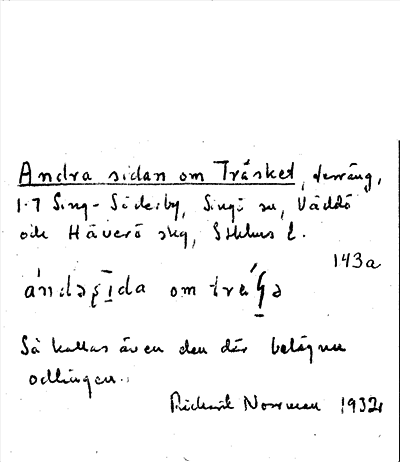 Andra sidan om Träsket, terräng,
1-7 Sing-Söderby, Singö sn, Väddö
och Häverö skg, Sthlms l.
143a
ándaṣīda om trä́ṣə
Så kallas även den där belägna
odlingen.
Rickard Norrman 1932